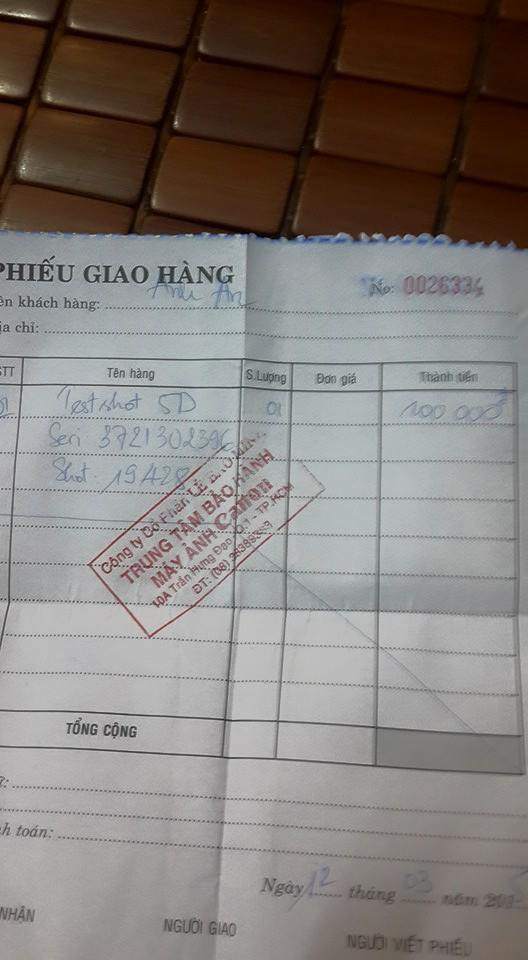 PHIẾU GIAO HÀNG
No: 0026334
ên khách hàng: Anh An
ịa chỉ:
STT Tên hàng S.Lượng Đơn giá Thành tiền
01 Test shot 5D 01 100 000đ
Seri 3721302396
Shot 19428
Công ty Cổ Phần LÊ BẢO MINH
TRUNG TÂM BẢO HÀNH
MÁY ẢNH Canon
10A Trần Hưng Đạo - Q.1 - TP.HCM
ĐT: (08)
TỔNG CỘNG
nh toán:
Ngày 12 tháng 03 năm 20
NHẬN NGƯỜI GIAO NGƯỜI VIẾT PHIẾU